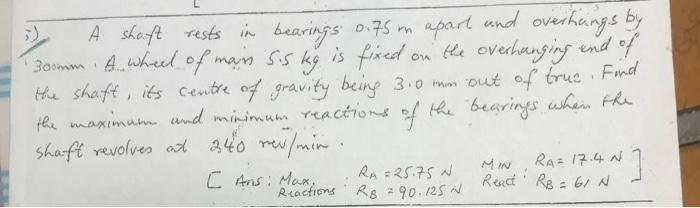 5) A shaft rests in bearings 0.75 m apart and overhangs by
300mm. A wheel of mass 5.5 kg is fixed on the overhanging end of
the shaft, its centre of gravity being 3.0 mm out of true. Find
the maximum and minimum reactions of the bearings when the
shaft revolves at 240 rev/min.
[ Ans: Max. Reactions : RA = 25.75 N MIN React : RA = 17.4 N ]
RB = 90.125 N RB = 61 N